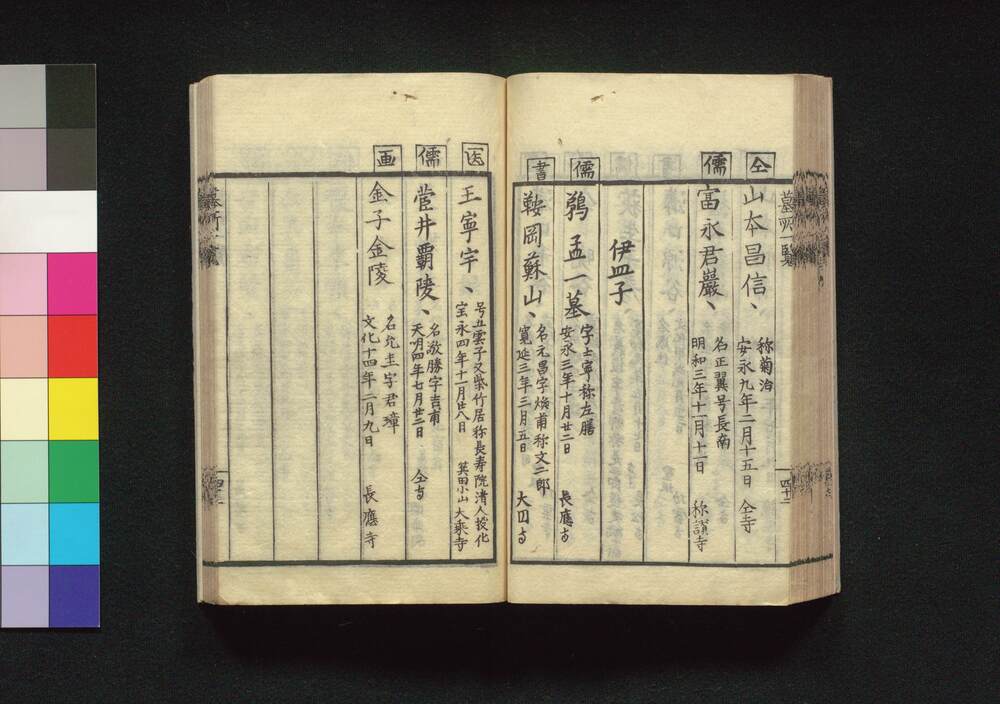 仝
山本昌信、
称菊治
安永九年二月十五日 仝寺
儒
富永君巖、
名正翼号長南
明和三年十一月十一日 称讃寺
伊皿子
儒
鵜孟一墓
字士寧称左膳
安永三年十月廿二日 長應寺
書
鞍岡蘇山、
名元昌字煥甫称文二郎
寛延三年三月五日 大円寺
医
王寧宇、
号五雲子又紫竹居称長寿院清人投化
宝永四年十一月廿八日 箕田小山大乗寺
儒
菅井覇陵、
名敬勝字吉甫
天明四年七月廿二日 仝寺
画
金子金陵
名允圭字君璋
文化十四年二月九日 長應寺
墓所一覧
四十二
墓所一覧
四十二